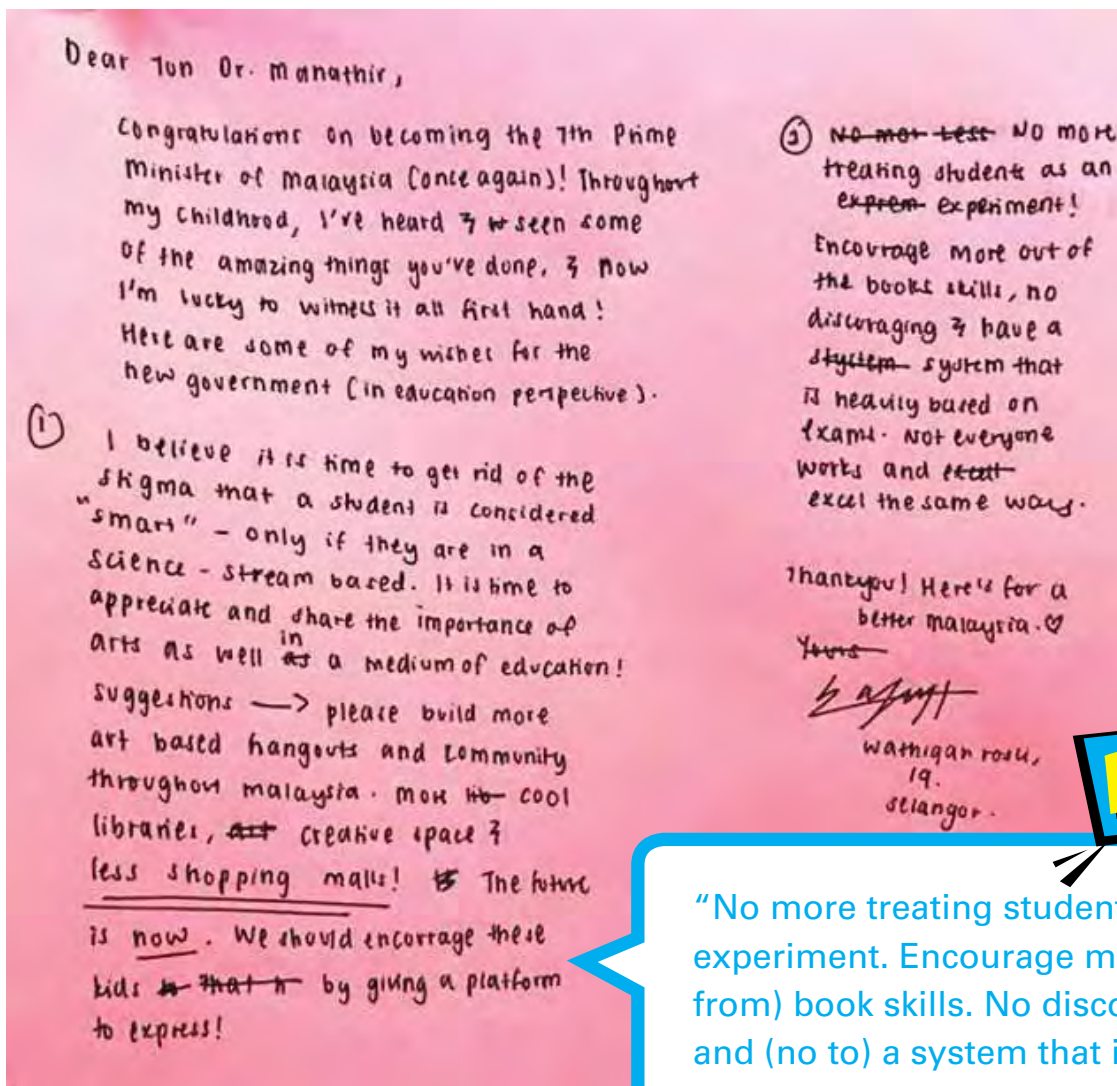 Dear Tun Dr. Mahathir,
Congratulations on becoming the 7th Prime
Minister of Malaysia (once again)! Throughout
my childhood, I've heard & seen some
of the amazing things you've done, & now
I'm lucky to witness it all first hand!
Here are some of my wishes for the
new government (in education perspective).
① I believe it is time to get rid of the
stigma that a student is considered
"smart" - only if they are in a
science - stream based. It is time to
appreciate and share the importance of
arts as well in a medium of education!
suggestions —> please build more
art based hangouts and community
throughout malaysia. more cool
libraries, creative space &
less shopping malls! The future
is now. We should encourage these
kids by giving a platform
to express!
② No more
treating students as an
experiment!
Encourage more out of
the books skills, no
discouraging & have a
system that
is heavily based on
exams. Not everyone
works and
excel the same ways.
Thankyou! Here's for a
better malaysia. ♡
Yours
19.
selangor.
"No more treating student
experiment. Encourage m
from) book skills. No disco
and (no to) a system that i